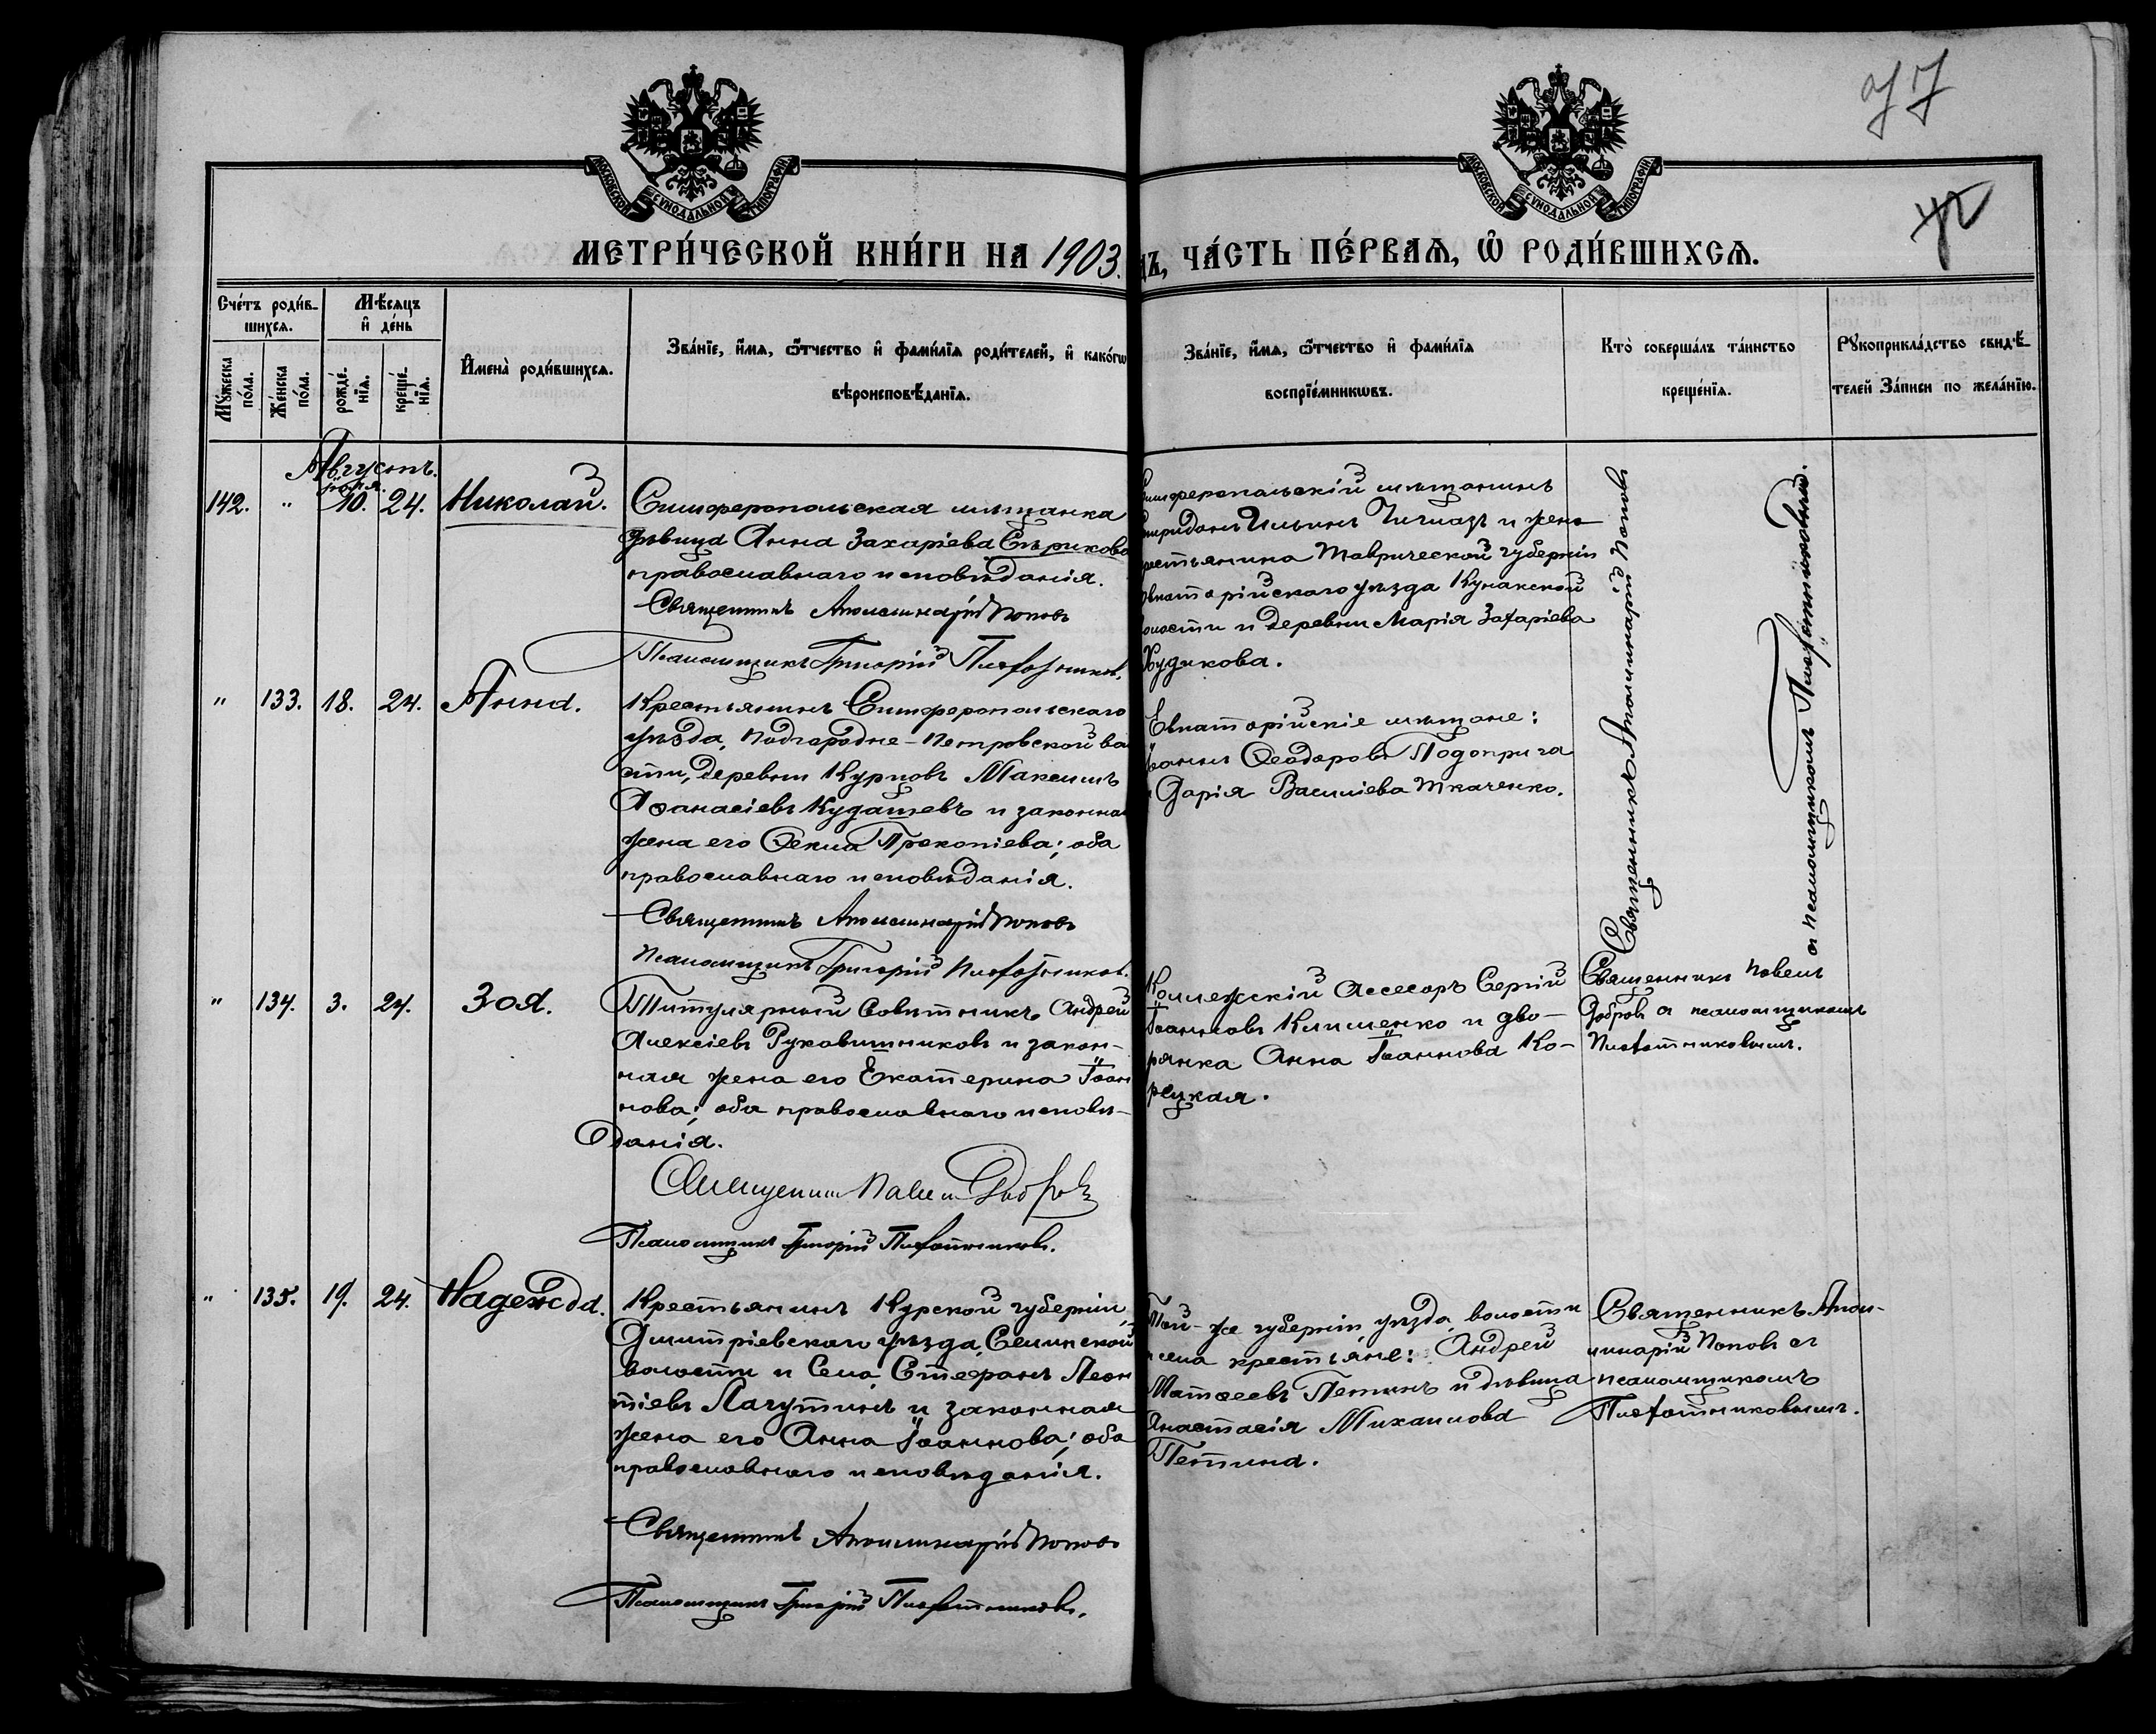 77
МОСКОВСКОЙ СУНОДАЛЬНОЙ ТИПОГРАФІИ
МОСКОВСКОЙ СУНОДАЛЬНОЙ ТИПОГРАФІИ
МЕТРИ́ЧЕСКОЙ КНИ́ГИ НА 1903.
ЧА́СТЬ ПЕ́РВАѦ, Ѡ РОДИ́ВШИХСѦ.
Сче́тъ роди́в-
шихсѧ.
Мѣ́сѧцъ
и҆ де́нь
Мꙋ́жеска по́ла.
Же́нска по́ла.
рожде́-
нїѧ.
креще́-
нїѧ.
И҆мена̀ роди́вшихсѧ.
Зва́нїе, и҆́мѧ, ѻ҆́тчество и҆ фами́лїѧ роди́телей, и҆ како́гѡ
вѣроисповѣ́данїѧ.
Зва́нїе, и҆́мѧ, ѻ҆́тчество и҆ фами́лїѧ
воспрїе́мникѡвъ.
Кто̀ соверша́лъ та́инство
креще́нїѧ.
Рꙋкоприкла́дство свидѣ́-
телей за́писи по жела́нїю.
Августъ.
142. " 10. 24. Николай.
Симферопольская мѣщанка
дѣвица Анна Захаріева Сѣрикова
православнаго исповѣданія.
Священникъ Аполлинарій Поповъ
Псаломщикъ Григорій
Симферопольскій мѣщанинъ
Спиридонъ Ильинъ и жена
крестьянина Таврической губерніи
Евпаторійскаго уѣзда Кунакской
волости и деревни Марія Захаріева
Худикова.
Священникъ Аполлинарій Поповъ
съ псаломщикомъ
" 133. 18. 24. Анна.
Крестьянинъ Симферопольскаго
уѣзда, Подгородне-Петровской во
сти, деревни Курцовъ Максимъ
Аѳанасіевъ Кудашевъ и законная
жена его Ѳекла Прокопіева; оба
православнаго исповѣданія.
Священникъ Аполлинарій Поповъ
Псаломщикъ Григорій
Евпаторійскіе мѣщане:
Іоаннъ Ѳеодоровъ Подопригa
и Дарія Василіева Ткаченко.
" 134. 3. 24. Зоя.
Титулярный Совѣтникъ Андрей
Алексіевъ Рукавишниковъ и закон-
ная жена его Екатерина Іоан
нова; оба православнаго исповѣ-
данія.
Священникъ Павелъ Добровъ
Псаломщикъ Григорій
Коллежскій Ассесоръ Сергій
Іоанновъ Клименко и дво-
рянка Анна Іоаннова Ко-
рецкая.
Священникъ Павелъ
Добровъ съ псаломщикомъ
" 135. 19. 24. Надежда.
Крестьянинъ Курской губерніи,
Дмитріевскаго уѣзда, Селинской
волости и села, Стефанъ Леон
тіевъ Лагутинъ и законная
жена его Анна Іоаннова; оба
православнаго исповѣданія.
Священникъ Аполлинарій Поповъ
Псаломщикъ Григорій
Той-же губерніи, уѣзда, волости
и села крестьяне: Андрей
Матѳеевъ Петинъ и дѣвица
Анастасія Михаилова
Петина.
Священникъ Апол-
линарій Поповъ съ
псаломщикомъ